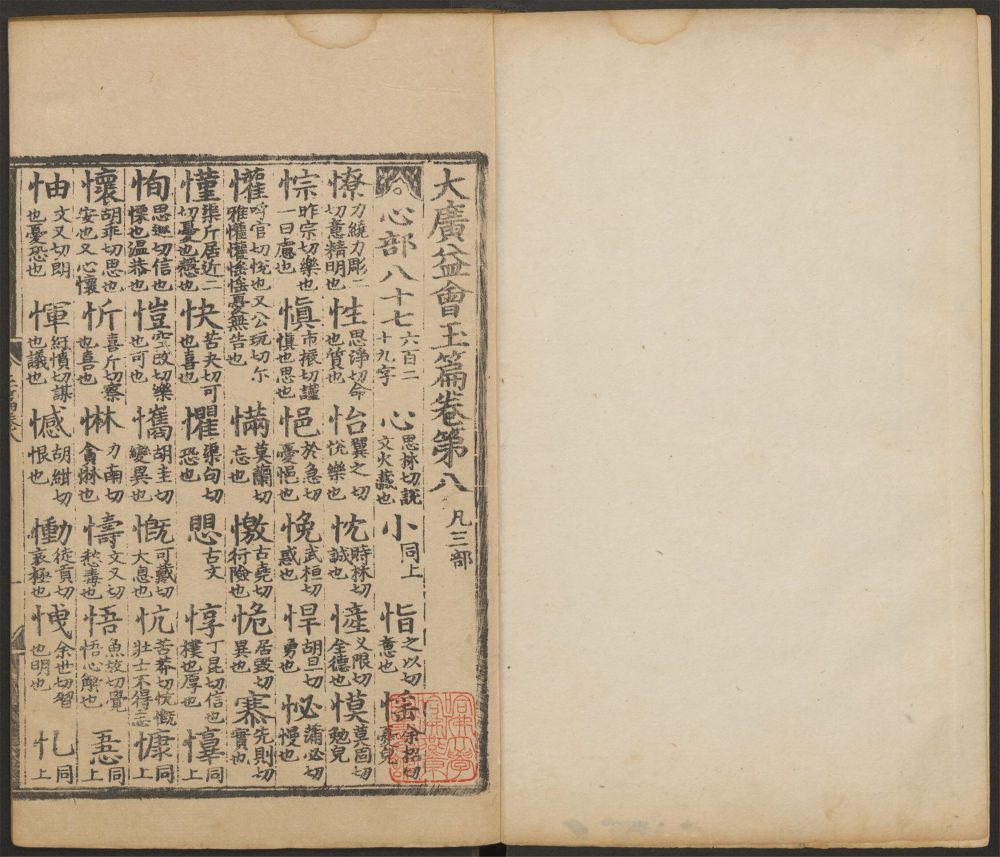 大廣益會玉篇卷第八 凡三部
心部八十七 六百二十九字 心 思林切說文火藏也 㣺 同上 恉 之以切意也 愮 余招切
憭 力繞力彫二切意精明也 性 思淨切命也質也 怡 翼之切悅樂也 忱 時林切誠也 㦃 义限切全德也 慔 莫固切勉皃
悰 昨宗切樂也一曰慮也 慎 市振切謹也慎也思也 悒 於急切憂悒也 悗 武桓切惑也 悍 胡旦切勇也 怭 蒲必切慢也
懽 呼官切悅也又公玩切尔雅懽懽愮愮憂無告也 慲 莫蘭切忘也 憿 古堯切行險也 恑 居毀切異也 㥶 先則切實也
慬 渠斤居近二切憂也慤也 快 苦夬切可也喜也 懼 渠句切恐也 思 古文 惇 丁昆切信也樸也厚也 㝇 同上
恂 思巡切信也慄也温恭也 愷 空改切樂也可也 㦭 胡圭切變異也 慨 可載切大息也 忼 苦莽切忼慨壯士不得志也 慷 同上
懷 胡乖切思也安也又心懷 忻 喜斤切察也喜也 惏 力南切貪惏也 懤 文又切愁毒也 悟 魚故切覺悟心解也 㤳 同上
怞 文又切朗也憂恐也 惲 紆憤切謀也議也 憾 胡紺切恨也 慟 徒貢切哀極也 㤞 余世切習也明也 同上